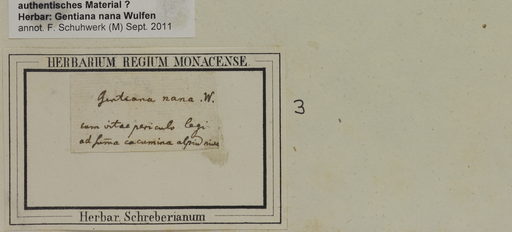 authentisches Material ?
Herbar: Gentiana nana Wulfen
annot. F. Schuhwerk (M) Sept. 2011
HERBARIUM REGIUM MONACENSE.
Gentiana nana. W.
cum vitae periculo legi
ad sum̄a cacumina alpiū
Herbar. Schreberianum
3